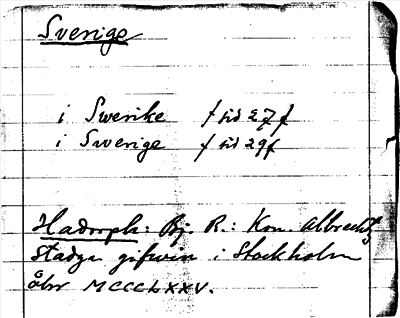 Sverige
i Swerike / sid 27 /
i Sverige / sid 29 /
Hadorph: Bj. R.: Kon. Albrechtz
Stadga gifwen i Stockholm
åhr MCCCLXXV.